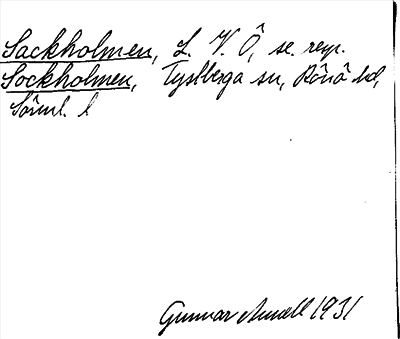 Sackholmen, L. V. Ö, se. resp.
Sockholmen, Tystberga sn, Rönö hd,
Söml. l
Gunnar Amell 1931